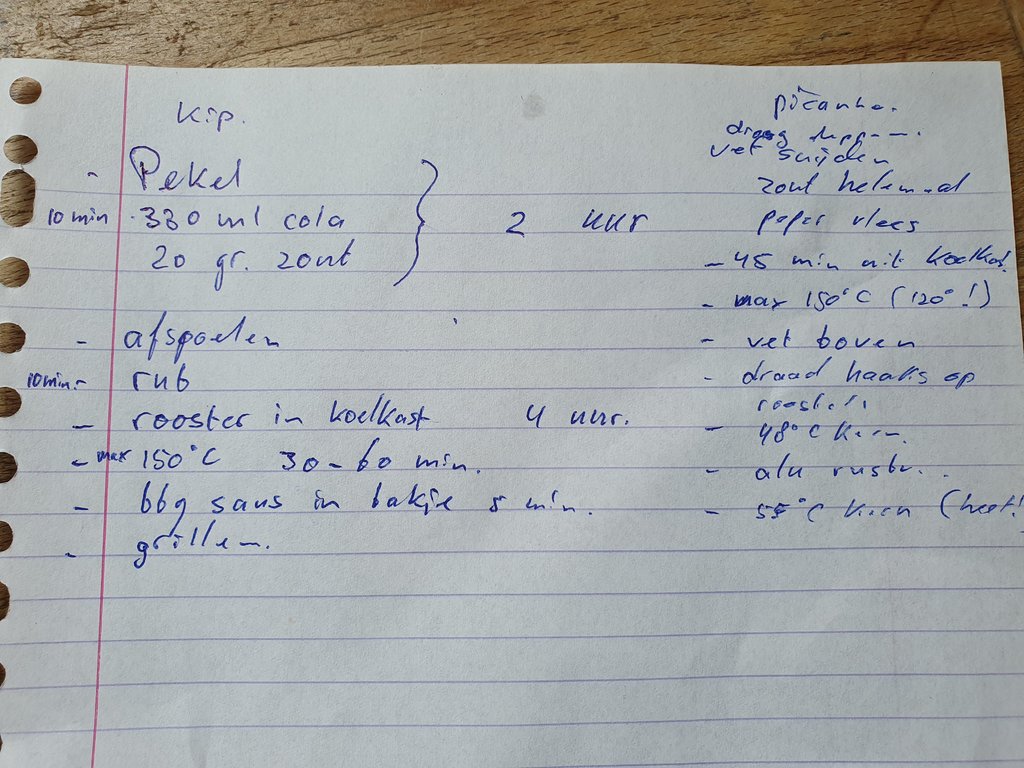 Kip.
- Pekel
10 min 330 ml cola 2 uur
20 gr. zout
- afspoelen
10 min. - rub
- rooster in koelkast 4 uur.
- max 150°C 30-60 min.
- bbq saus in bakje 5 min.
- grillen.
picanha.
droog deppen.
vet snijden
zout helemaal
peper vlees
- 45 min uit koelkast
- max 150°C (120°!)
- vet boven
- draad haaks op
rooster
- 48°C kern.
- alu rusten.
- 55°C kern (heet!